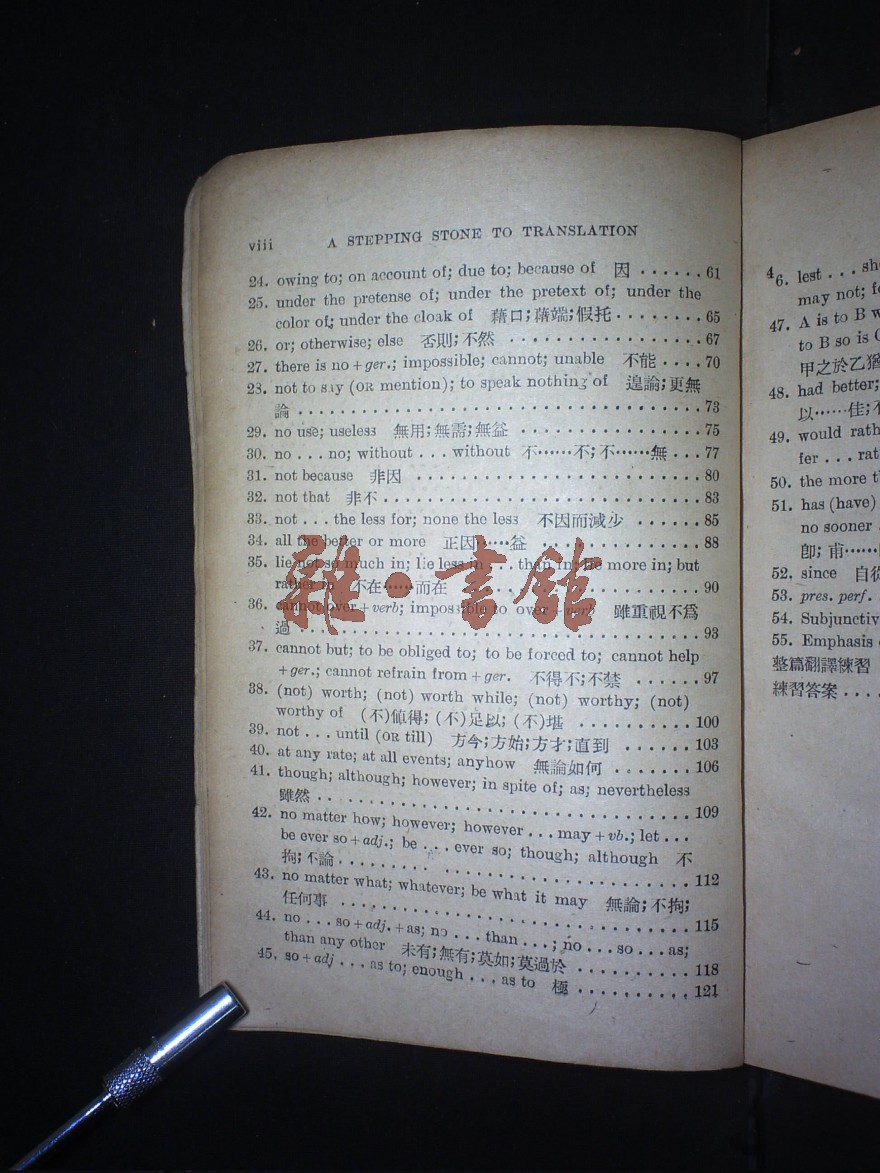 viii A STEPPING STONE TO TRANSLATION
24. owing to; on account of; due to; because of 因 ...... 61
25. under the pretense of; under the pretext of; under the
color of; under the cloak of 藉口; 藉端; 假托 ........ 65
26. or; otherwise; else 否則; 不然 ................. 67
27. there is no + ger.; impossible; cannot; unable 不能 .... 70
28. not to say (OR mention); to speak nothing of 遑論; 更無
論 .................................... 73
29. no use; useless 無用; 無需; 無益 ................ 75
30. no ... no; without ... without 不……不; 不……無 ... 77
31. not because 非因 .......................... 80
32. not that 非不 ............................ 83
33. not ... the less for; none the less 不因而減少 ...... 85
34. all the better or more 正因……益 .............. 88
35. lie not so much in; lie less in ... than in; lie more in; but
rather in 不在……而在 ..................... 90
36. cannot over + verb; impossible to over + verb 雖重視不爲
過 .................................... 93
37. cannot but; to be obliged to; to be forced to; cannot help
+ ger.; cannot refrain from + ger. 不得不; 不禁 ...... 97
38. (not) worth; (not) worth while; (not) worthy; (not)
worthy of (不)値得; (不)足以; (不)堪 .......... 100
39. not ... until (OR till) 方今; 方始; 方才; 直到 ...... 103
40. at any rate; at all events; anyhow 無論如何 ....... 106
41. though; although; however; in spite of; as; nevertheless
雖然 .................................. 109
42. no matter how; however; however ... may + vb.; let ...
be ever so + adj.; be ... ever so; though; although 不
拘; 不論 ............................... 112
43. no matter what; whatever; be what it may 無論; 不拘;
任何事 ................................ 115
44. no ... so + adj. + as; no ... than ...; no ... so ... as;
than any other 未有; 無有; 莫如; 莫過於 .......... 118
45. so + adj ... as to; enough ... as to 極 ........... 121
雜·書館
46. lest ...
may not;
47. A is to B
to B so is
甲之於乙猶
48. had better;
以……佳;
49. would rath
fer ... rat
50. the more
51. has (have)
no sooner
卽; 甫……
52. since 自從
53. pres. perf.
54. Subjunctiv
55. Emphasis
整篇翻譯練習
練習答案 ....